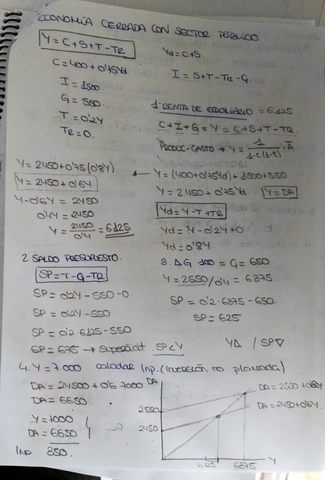 ECONOMÍA CERRADA CON SECTOR PÚBLICO.
Y = C+S+T-TR
Yd = C+S
C = 400 + 0'75Yd
I = 1500
I = S+T-TR-G
G = 550
T = 0'2Y
TR = 0.
1. RENTA DE EQUILIBRIO = 6125
C+I+G = Y = C+S+T-TR.
PRODUC-GASTO → Y = 1/1-c(1-t) · A
Y = (400+0'75Yd)+1500+550
Y = 2450+0'75Yd
Y = DA
Yd = Y-T+TR
Yd = Y-0'2Y+0
Yd = 0'8Y
Y = 2450+0'75(0'8Y)
Y = 2450+0'6Y
Y-0'6Y = 2450
0'4Y = 2450
Y = 2450/0'4 = 6125
2. SALDO PRESUPUESTO.
SP = T-G-TR
SP = 0'2Y-550-0
SP = 0'2Y-550
SP = 0'2·6125-550
SP = 675 → Superávit
3. Δ G 100 = G = 650
Y = 2550/0'4 = 6375
SP = 0'2·6375-650.
SP = 625
YΔ / SP∇
4. Y = 7.000 calcular Inp. (inversión no planeada)
DA = 24500+0'6·7000
DA = 6650.
Y = 7000
DA = 6650
Inp 350.
DA
2550
2450
6125
6375
Y
DA = 2450+0'6Y